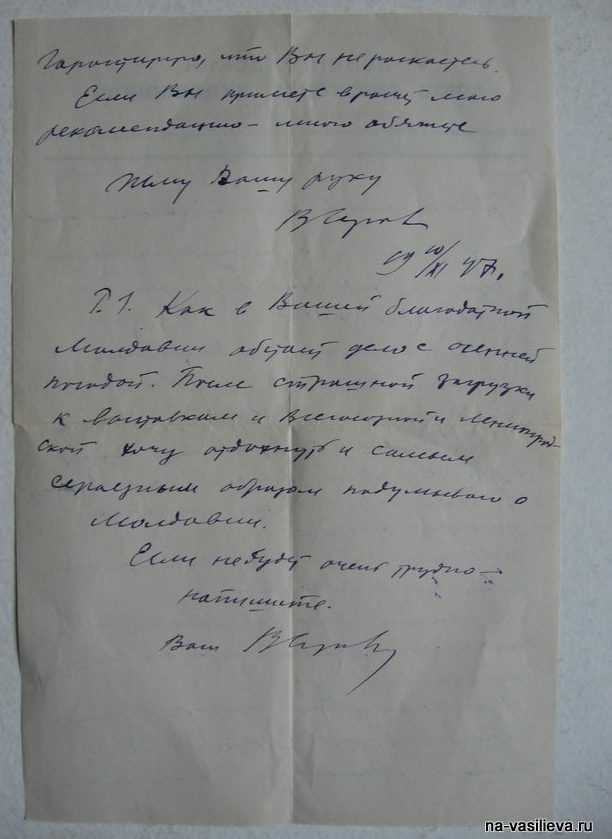 Гарантирую, что Вы не раскаетесь.
Если Вы примете в расчет мою
рекомендацию – много обяжете
Жму Вашу руку
19 10/XI 47.
P.S. Как в Вашей благодатной
Молдавии обстоит дело с осенней
погодой. После страшной загрузки
к выставкам и Всесоюзной и Ленинград-
ской хочу отдохнуть и самым
серьезным образом подумываю о
Молдавии.
Если не будет очень трудно –
напишите.
Ваш
na-vasilieva.ru